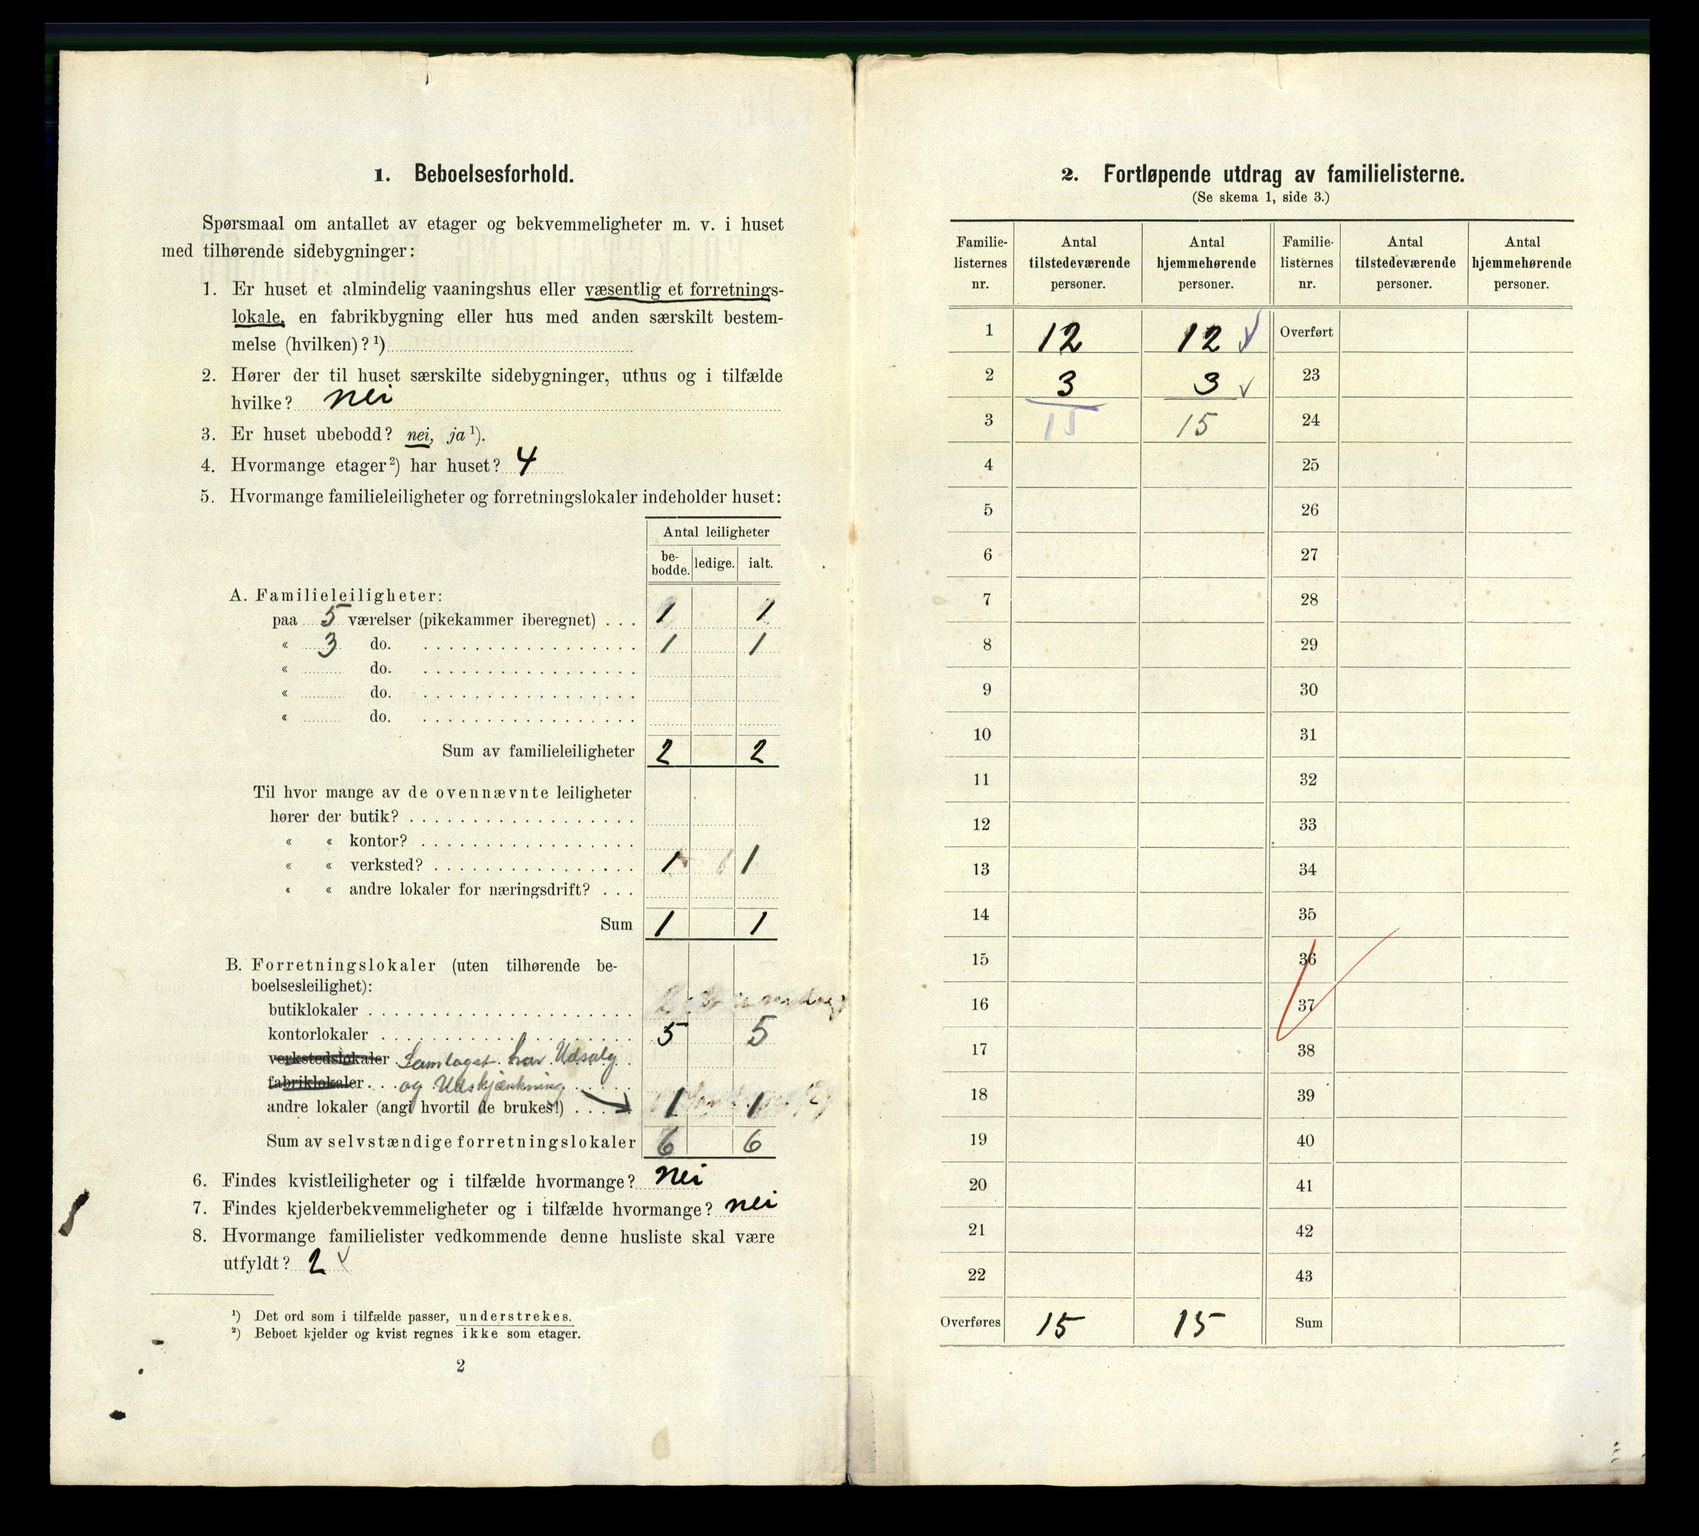 1. Beboelsesforhold.
Spørsmaal om antallet av etager og bekvemmeligheter m. v. i huset
med tilhørende sidebygninger:
1. Er huset et almindelig vaaningshus eller væsentlig et forretnings-
lokale, en fabrikbygning eller hus med anden særskilt bestem-
melse (hvilken)?¹)
2. Hører der til huset særskilte sidebygninger, uthus og i tilfælde
hvilke? nei
3. Er huset ubebodd? nei, ja¹).
4. Hvormange etager²) har huset? 4
5. Hvormange familieleiligheter og forretningslokaler indeholder huset:
Antal leiligheter
be-
bodde. ledige. ialt.
A. Familieleiligheter:
paa 5 værelser (pikekammer iberegnet) . . . 1 1
« 3 do. 1 1
« do.
« do.
« do.
Sum av familieleiligheter 2 2
Til hvor mange av de ovennævnte leiligheter
hører der butik?
« « kontor?
« « verksted? 1 1
« « andre lokaler for næringsdrift? . . .
Sum 1 1
B. Forretningslokaler (uten tilhørende be-
boelsesleilighet):
butiklokaler
kontorlokaler 5 5
verkstedslokaler Samlaget har Udsalg
fabriklokaler og Udskjænkning
andre lokaler (angi hvortil de brukes!) 1 1
Sum av selvstændige forretningslokaler 6 6
6. Findes kvistleiligheter og i tilfælde hvormange? nei
7. Findes kjelderbekvemmeligheter og i tilfælde hvormange? nei
8. Hvormange familielister vedkommende denne husliste skal være
utfyldt? 2 ✓
¹) Det ord som i tilfælde passer, understrekes.
²) Beboet kjelder og kvist regnes ikke som etager.
2
2. Fortløpende utdrag av familielisterne.
(Se skema 1, side 3.)
Familie- Antal Antal Familie- Antal Antal
listernes tilstedeværende hjemmehørende listernes tilstedeværende hjemmehørende
nr. personer. personer. nr. personer. personer.
1 12 12 ✓ Overført
2 3 3 ✓ 23
3 15 15 24
4 25
5 26
6 27
7 28
8 29
9 30
10 31
11 32
12 33
13 34
14 35
15 36
16 37
17 38
18 39
19 40
20 41
21 42
22 43
Overføres 15 15 Sum